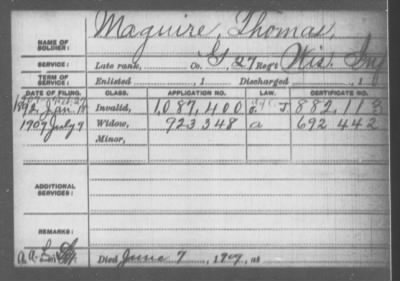 NAME OF SOLDIER: Maguire, Thomas,
SERVICE: Late rank, Co. G, 27 Reg't Wis. Inf
TERM OF SERVICE: Enlisted , 1 Discharged , 1
DATE OF FILING. CLASS. APPLICATION NO. LAW. CERTIFICATE NO.
1892, Jan. Invalid, 1,087,400 J 882,113
1907 July 9 Widow, 923348 a 692442
Minor,
ADDITIONAL SERVICES:
REMARKS:
Died June 7, 1907, at